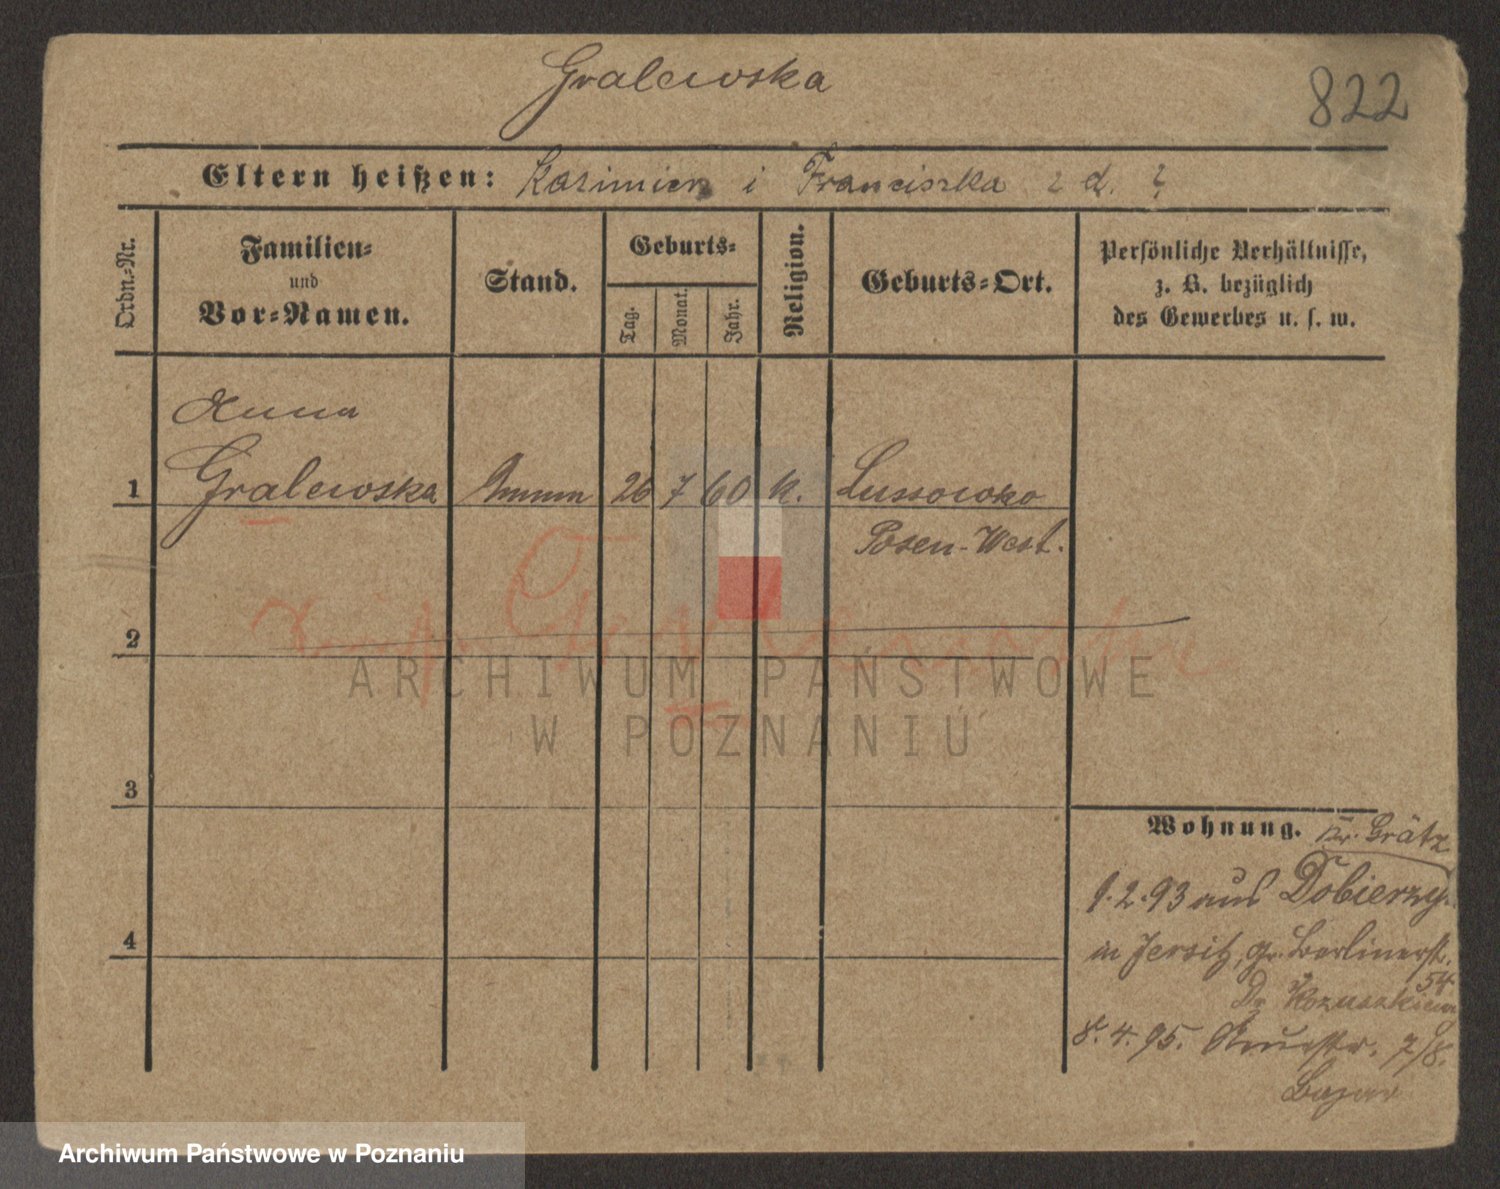 Gralewska
822
Eltern heißen: Kazimierz i Franciszka z d. ?
Ordn.-Nr.
Familien-
und
Vor-Namen.
Stand.
Geburts-
Tag.
Monat.
Jahr.
Religion.
Geburts-Ort.
Persönliche Verhältnisse,
z. B. bezüglich
des Gewerbes u. s. w.
Anna
1 Gralewska Amme 26 7 60 k. Lussowko
Posen-West.
2
3
4
Wohnung. Kr. Grätz
1.2.93 aus Dobierzyn
in Jersitz, gr. Berlinerstr.
54
8.4.95. 7/8.
Bazar
ARCHIWUM PAŃSTWOWE
W POZNANIU
Archiwum Państwowe w Poznaniu